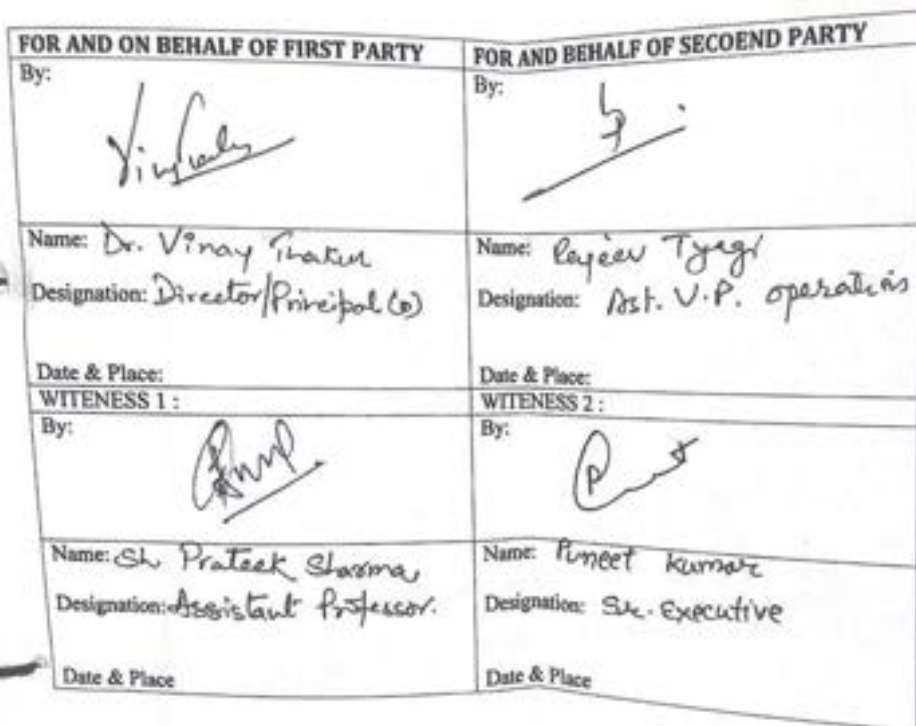 FOR AND ON BEHALF OF FIRST PARTY
FOR AND BEHALF OF SECOEND PARTY
By:
By:
Name: Dr. Vinay Thakur
Designation: Director/Principal (o)
Date & Place:
Name: Rajeev Tyagi
Designation: Ast. V.P. operations
Date & Place:
WITENESS 1 :
WITENESS 2 :
By:
By:
Name: Sh. Prateek Sharma
Designation: Assistant Professor.
Date & Place
Name: Puneet Kumar
Designation: Sr. Executive
Date & Place